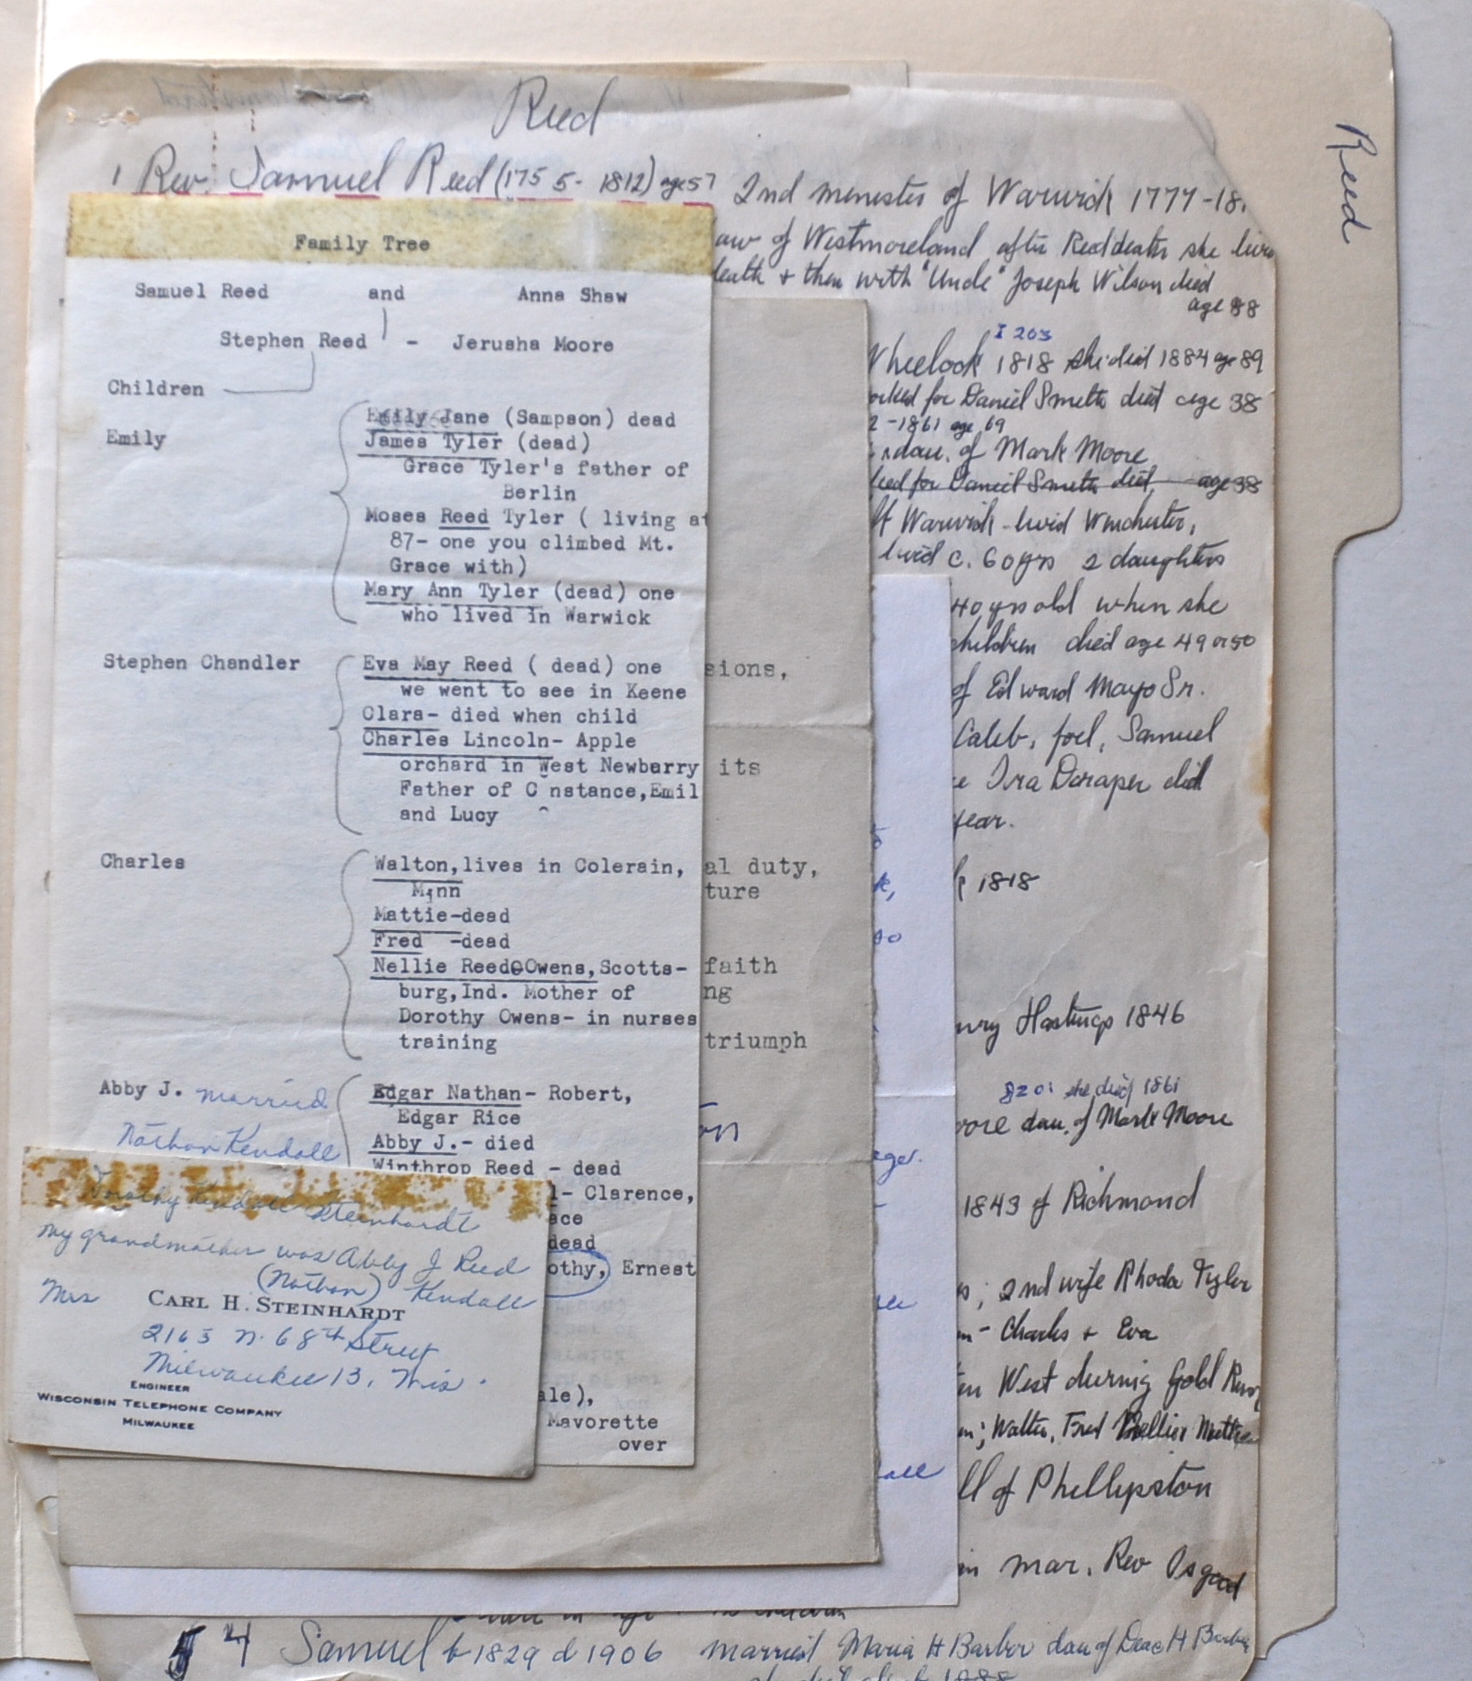 Reed
Reed
1 Rev. Samuel Reed (1755-1812) age 57 2nd menester of Warwick 1777-18
of Westmoreland after Reed death she
death + then with "Uncle" Joseph Wilson died
age 88
I 203
Wheelock 1818 she died 1884 age 89
for Daniel Smith died age 38
-1861 age 69
dau. of Mark Moore
for Daniel Smith died age 38
Warwick - livid Winchester,
livid c. 60 yrs 2 daughters
40 yrs old when she
children died age 49 or 50
of Edward Mayo Sr.
Caleb, Joel, Samuel
Ira Draper did
year.
1818
Hastings 1846
she died 1861
dau. of Mark Moore
1843 of Richmond
; 2nd wife Rhoda Tyler
- Charles + Eva
West during Gold
; Walter, Fred Nellie Mattie
ll of Phillipston
mar. Rev Osgood
4 Samuel b 1829 d 1906 married Maria H Barber dau of Deac H Barber
Family Tree
Samuel Reed and Anna Shaw
Stephen Reed - Jerusha Moore
Children
Emily Jane (Sampson) dead
Emily James Tyler (dead)
Grace Tyler's father of
Berlin
Moses Reed Tyler ( living at
87- one you climbed Mt.
Grace with)
Mary Ann Tyler (dead) one
who lived in Warwick
Stephen Chandler Eva May Reed ( dead) one
we went to see in Keene
Clara- died when child
Charles Lincoln- Apple
orchard in West Newbarry
Father of C nstance,Emil
and Lucy ^
Charles Walton,lives in Colerain,
Minn
Mattie-dead
Fred -dead
Nellie Reed Owens,Scotts-
burg,Ind. Mother of
Dorothy Owens- in nurses
training
Abby J. married Edgar Nathan- Robert,
Edgar Rice
Nathan Kendall Abby J.- died
Winthrop Reed - dead
- Clarence,
ace
dead
othy, Ernest
ale),
Mavorette
over
sions,
its
al duty,
ture
faith
ng
triumph
Dorothy Kendall Steinhardt
my grandmother was Abby J Reed
(Nathan) Kendall
Mrs CARL H. STEINHARDT
2165 N. 68th Street
Milwaukee 13, Wis.
ENGINEER
WISCONSIN TELEPHONE COMPANY
MILWAUKEE